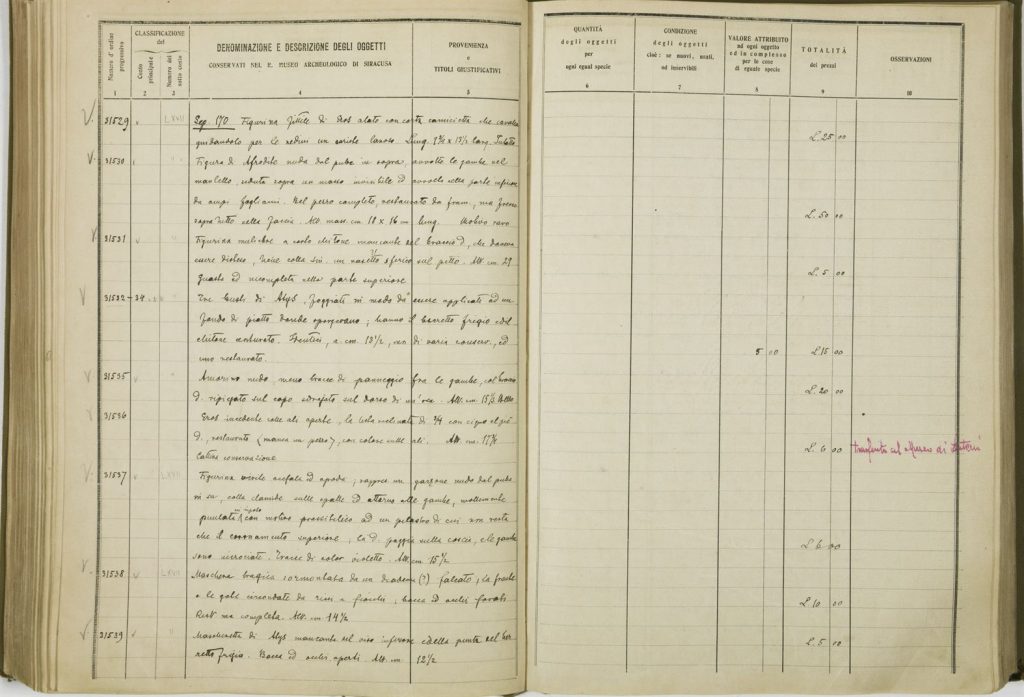 Numero d'ordine progressivo
CLASSIFICAZIONE
del
Ceto principale
Numero del sotto ceto
DENOMINAZIONE E DESCRIZIONE DEGLI OGGETTI
CONSERVATI NEL R. MUSEO ARCHEOLOGICO DI SIRACUSA
PROVENIENZA
e
TITOLI GIUSTIFICATIVI
1 2 3 4 5
31529 v LXVII Sep. 170 Figurina fittile di Eros alato con corta camicietta che cavalca
guidandolo per le redini un
31530 " Figura di Afrodite nuda dal pube in sopra, avvolte le gambe nel
mantello, seduta sopra un masso invisibile ed avvolto nella parte inferiore
da ampi fogliami. Bel pezzo completo, restaurato da framm., ma
sopra tutto nella faccia. Alt. mass. cm 18 x 16 in lung. Motivo raro
31531 v " Figurina muliebre a corto chitone mancante del braccio d., che doveva
essere disteso, tiene colla sin. un vasetto sferico sul petto. Alt. cm. 29
Guasta ed incompleta nella parte superiore
31532-34 " Tre busti di Atys, foggiati in modo da essere applicati ad un
fondo di piatto ; hanno il berretto frigio ed il
chitone a cm. 13½, di varia conserv., ed
uno restaurato.
31535 v " Amorino nudo, meno tracce di panneggio fra le gambe, col braccio
d. ripiegato sul capo sdraiato sul dorso di un' oca. Alt. cm. 15½
31536 Eros incedente colle ali aperte, la testa reclinata di ¾ con
d., restaurato (manca un pezzo), con colore sulle ali. Alt. cm.
Cattiva conservazione
31537 v LXVII Figurina virile acefala ed apoda; rappres. un garzone nudo dal pube
in su, colla clamide sulle spalle ed attorno alle gambe, mollemente
puntati in riposo con motivo prassitelico ad un pilastro di cui non resta
che il coronamento superiore, la d. poggia sulla coscia, e le gambe
sono incrociate. Tracce di color violetto. Alt. cm 15½
31538 LXVII Maschera tragica sormontata da un diadema (?) falcato, la fronte
e le gote circondate da ricci a fiocchi, bocca ed occhi forati
Rest. ma completa. Alt. cm. 14½
31539 v " Mascheretta di Atys mancante nel viso inferiore e della punta nel ber-
retto frigio. Bocca ed occhi aperti. Alt. cm 12½
QUANTITÀ
degli oggetti
per
ogni egual specie
CONDIZIONE
degli oggetti
cioè: se nuovi, usati,
od inservibili
VALORE ATTRIBUITO
ad ogni oggetto
ed in complesso
per le cose
di eguale specie
TOTALITÀ
dei prezzi
OSSERVAZIONI
6 7 8 9 10
L. 25 00
L. 50 00
L. 5 00
5 00 L. 15 00
L. 20 00
L. 6 00 trasferito al Museo di
L. 6 00
L. 10 00
L. 5 00